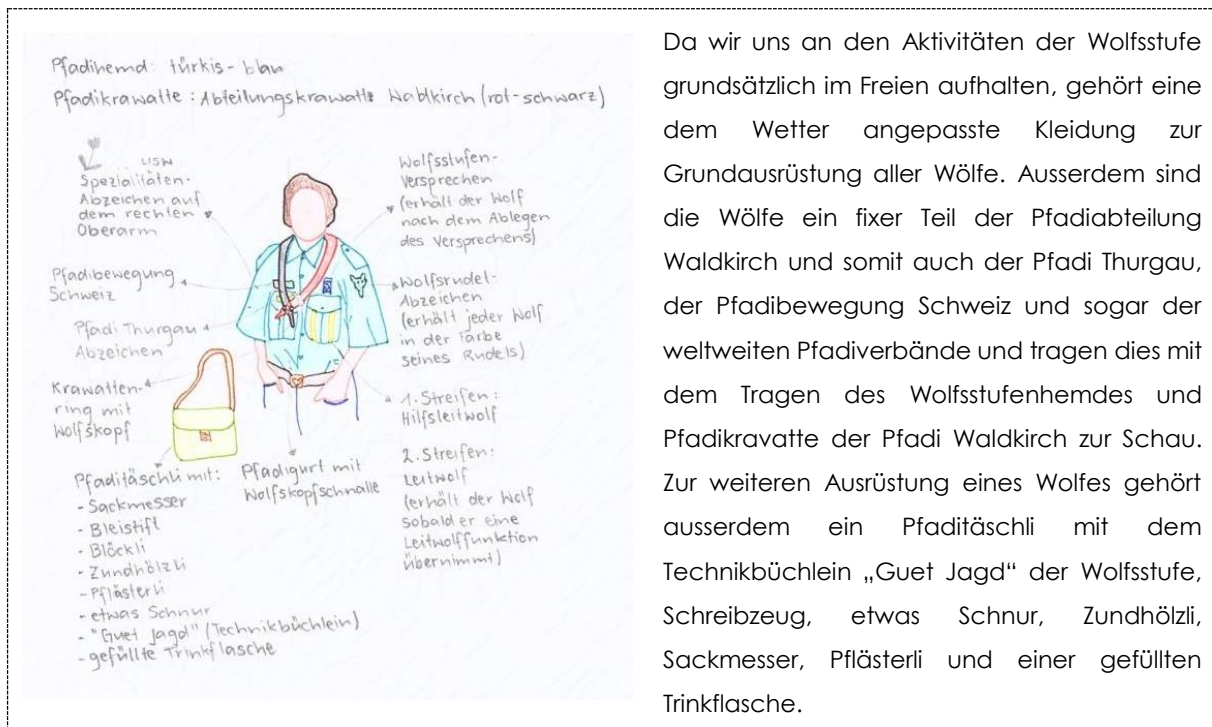 Pfadihemd: türkis-blau
Pfadikrawatte: Abteilungskrawatte Waldkirch (rot-schwarz)
Spezialitäten-
Abzeichen auf
dem rechten
Oberarm
Pfadibewegung
Schweiz
Pfadi Thurgau
Abzeichen
Krawatten-
ring mit
Wolfskopf
Pfaditäschli mit:
- Sackmesser
- Bleistift
- Blöckli
- Zundhölzli
- Pflästerli
- etwas Schnur
- "Guet Jagd" (Technikbüchlein)
- gefüllte Trinkflasche
Pfadigurt mit
Wolfskopfschnalle
Wolfsstufen-
Versprechen
(erhält der Wolf
nach dem Ablegen
des Versprechens)
Wolfsrudel-
Abzeichen
(erhält jeder Wolf
in der Farbe
seines Rudels)
1. Streifen:
Hilfsleitwolf
2. Streifen:
Leitwolf
(erhält der Wolf
sobald er eine
Leitwolffunktion
übernimmt)
Da wir uns an den Aktivitäten der Wolfsstufe
grundsätzlich im Freien aufhalten, gehört eine
dem Wetter angepasste Kleidung zur
Grundausrüstung aller Wölfe. Ausserdem sind
die Wölfe ein fixer Teil der Pfadiabteilung
Waldkirch und somit auch der Pfadi Thurgau,
der Pfadibewegung Schweiz und sogar der
weltweiten Pfadiverbände und tragen dies mit
dem Tragen des Wolfsstufenhemdes und
Pfadikravatte der Pfadi Waldkirch zur Schau.
Zur weiteren Ausrüstung eines Wolfes gehört
ausserdem ein Pfaditäschli mit dem
Technikbüchlein „Guet Jagd“ der Wolfsstufe,
Schreibzeug, etwas Schnur, Zundhölzli,
Sackmesser, Pflästerli und einer gefüllten
Trinkflasche.